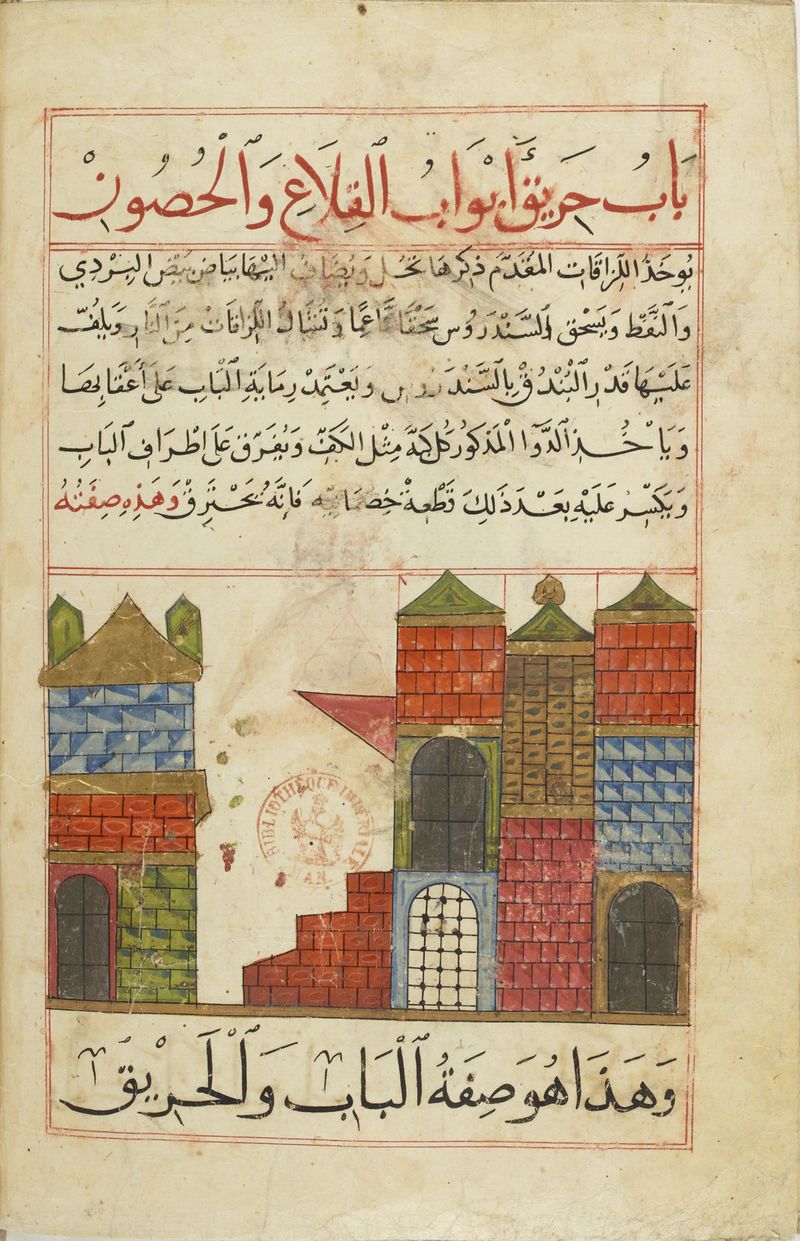 بَابُ حَرِيقِ أَبْوَابِ الْقِلَاعِ وَالْحُصُونِ
يُوخَذُ اللزاقَات المقَدَّم ذكرهَا نحُل وَيُضَافُ اليْهَا بيَاض بَيْض البَرْدِي
وَالنَّفْط وَيَسْحَق السَّنْدَرُوس سَحْقًا نَاعِمًا وَتُشَالُ اللزَاقَاتْ مِنَ النَّارِ وَيلفُّ
عَليْهَا قَدْرِ البُنْدُقْ بِالسَّنْدَرُوس وَيَعْتَمِدْ رِمَايَة البَاب عَلَى أَعْقَا
وَيَاخُذ الدَّوَا المَذكُور كُل كبَّة مِثْل الكَفّ وَيُفَرّق عَلَى اطْرَاف البَابِ
وَيَكسْرُ عَليْهِ بَعْدَ ذَلِكَ قَطْعَة فَانَّهُ يَحْتَرِقْ وَهَذِهِ صِفَتُهُ
BIBLIOTHÈQUE IMPÉRIALE
MAN.
وَهَذَا هُوَ صِفَةُ الْبَابِ وَالْحَرِيقِ